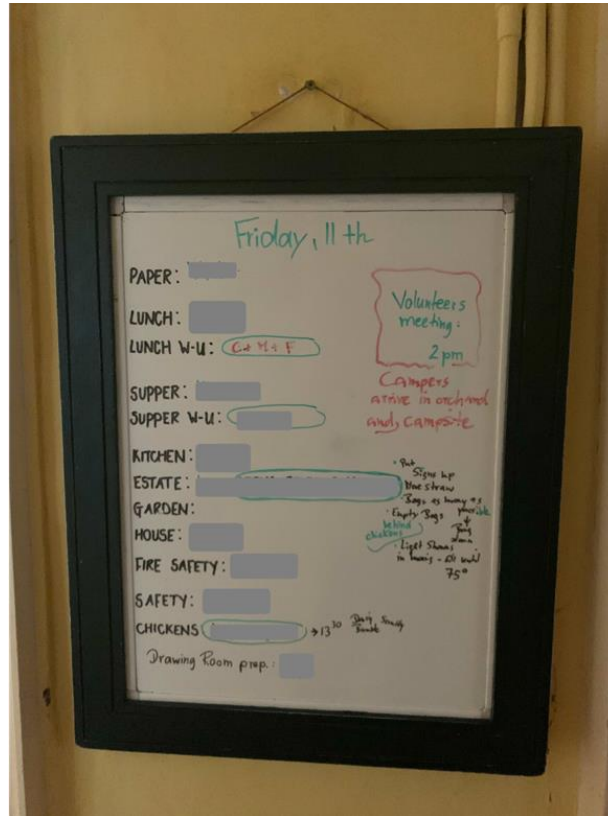 Friday, 11th
PAPER:
LUNCH:
LUNCH W-U: C + M + F
SUPPER:
SUPPER W-U:
KITCHEN:
ESTATE:
GARDEN:
HOUSE:
FIRE SAFETY:
SAFETY:
CHICKENS → 13 30
Drawing Room prep.:
Volunteers
meeting:
2 pm
Campers
arrive in orchard
and campsite
• Put
Signs up
straw
• Bags as many as
possible
• Empty Bags
behind
chickens
• Light
in - until
75°